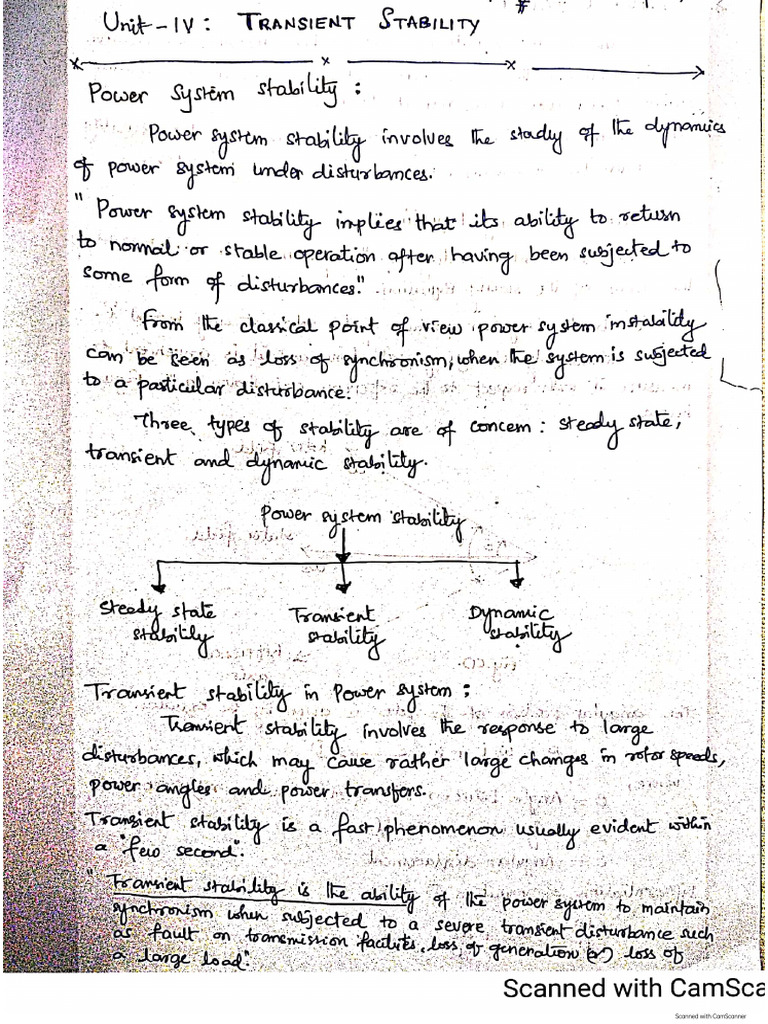 #
Unit-IV: TRANSIENT STABILITY
Power System stability:
Power system stability involves the study of the dynamics
of power system under disturbances.
" Power system stability implies that its ability to return
to normal or stable operation after having been subjected to
some form of disturbances."
From the classical point of view power system instability
can be seen as loss of synchronism, when the system is subjected
to a particular disturbance.
Three types of stability are of concern: steady state,
transient and dynamic stability.
Power system stability
Steady state Transient Dynamic
stability stability stability
Transient stability in Power system;
Transient stability involves the response to large
disturbances, which may cause rather large changes in rotor speeds,
power angles and power transfers.
Transient stability is a fast phenomenon usually evident within
a "few second".
" Transient stability is the ability of the power system to maintain
synchronism when subjected to a severe transient disturbance such
as fault on transmission facilities, loss of generation (or) loss of
a large load"
Scanned with CamSca
Scanned with CamScanner